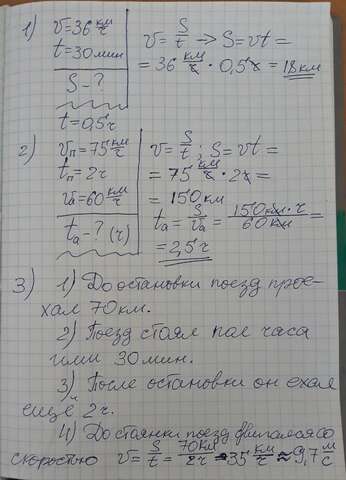 1) v=36 км/ч
t=30 мин
S-?
t=0,5ч
v= S/t → S=vt=
=36 км/ч · 0,5ч = 18 км
2) vп=75 км/ч
tп=2ч
vа=60 км/ч
tа-? (ч)
v= S/t ; S=vt=
=75 км/ч · 2ч =
=150 км
tа= S/vа = 150км·ч/60км =
=2,5ч
3) 1) До остановки поезд прое-
хал 70 км.
2) Поезд стоял пол часа
или 30 мин.
3) После остановки он ехал
ещё 2ч.
4) До стоянки поезд двигался со
скоростью v= S/t = 70км/2ч = 35 км/ч ≈ 9,7 м/с